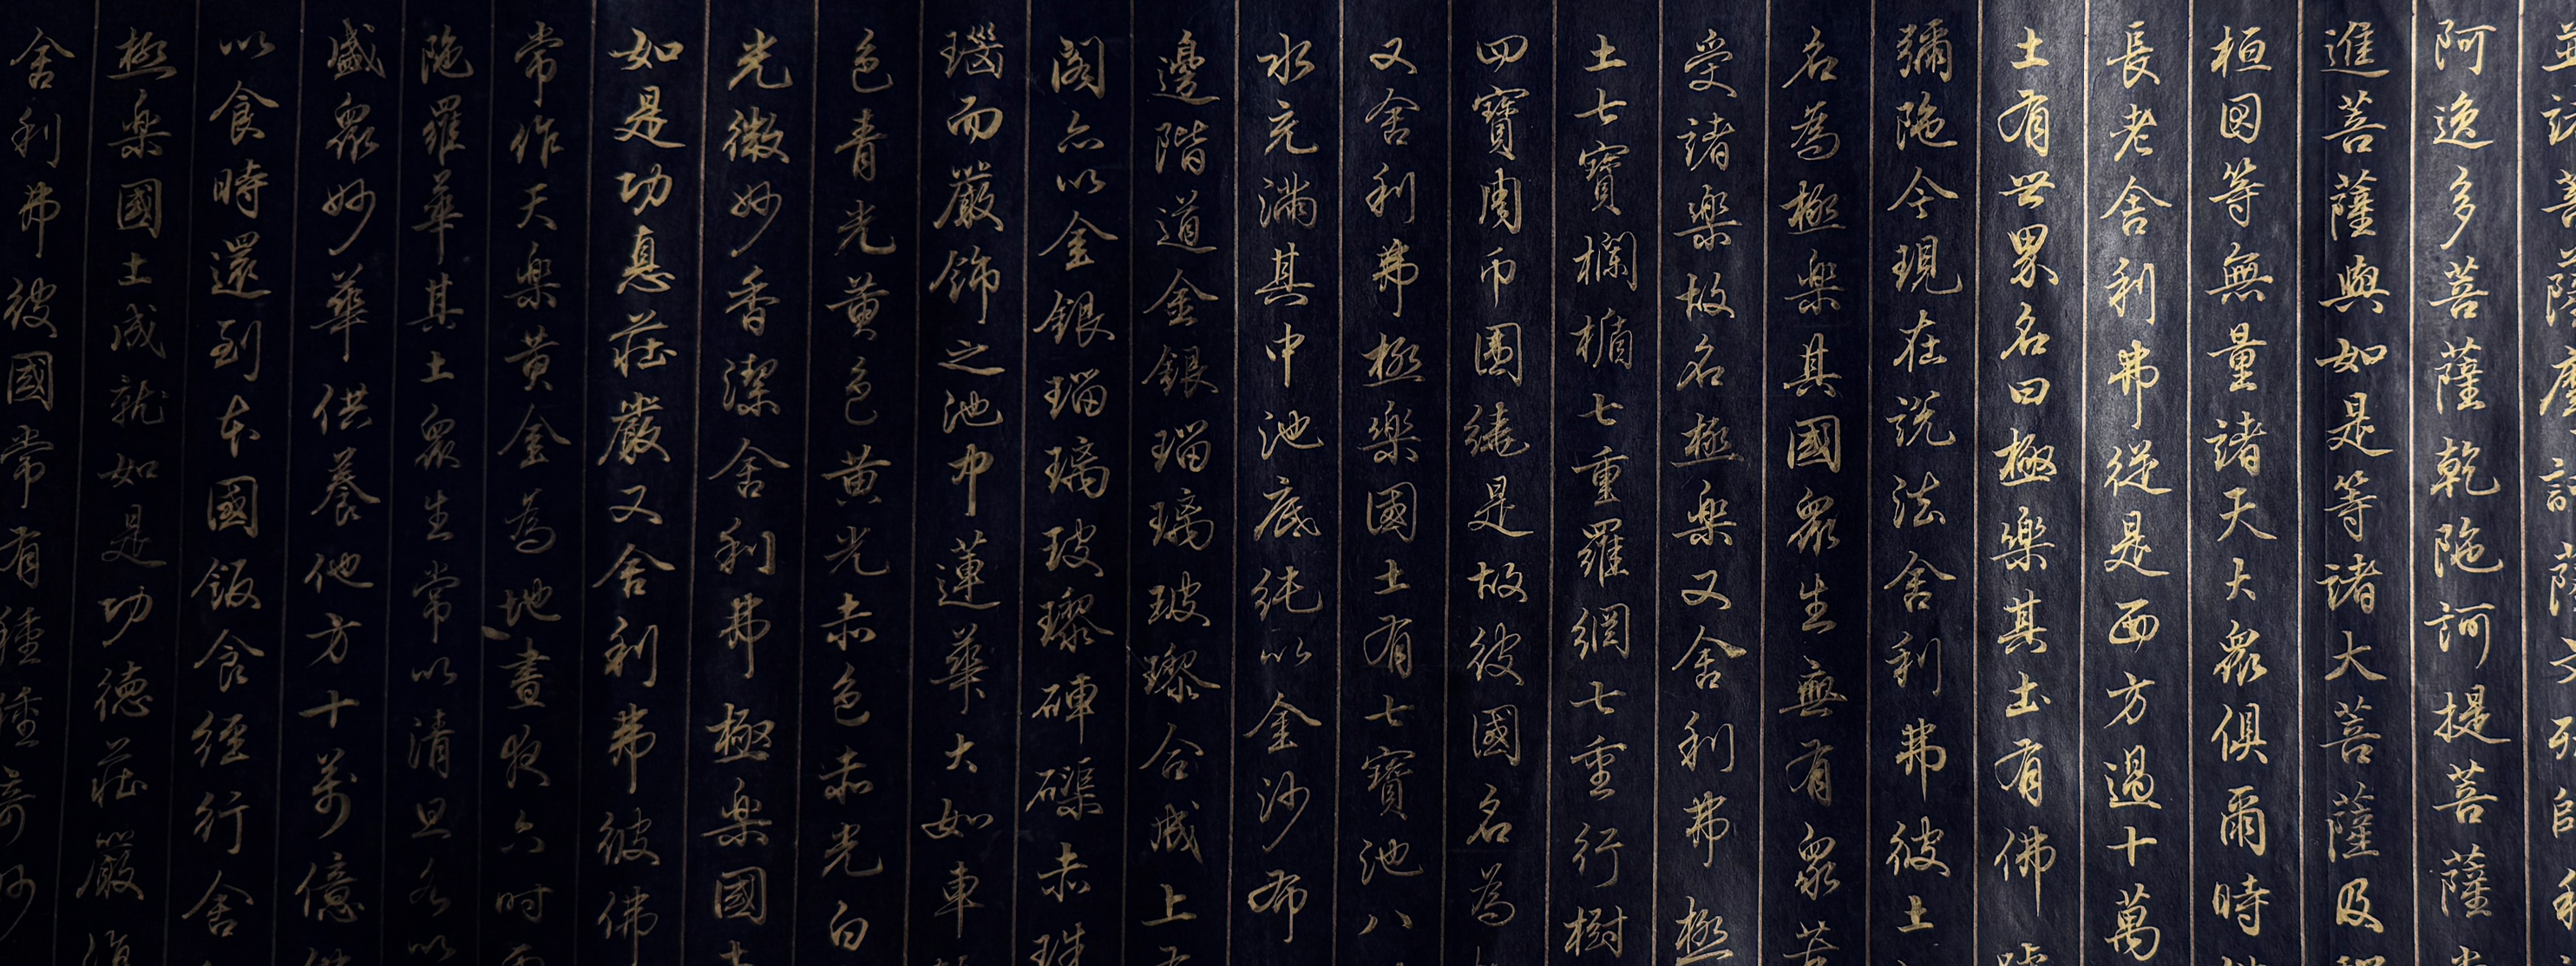 阿逸多菩薩乾陁訶提菩薩常
進菩薩與如是等諸大菩薩及釋
桓因等無量諸天大眾俱爾時
長老舍利弗從是西方過十萬
土有世界名曰極樂其土有佛號
彌陁今現在說法舍利弗彼土
名為極樂其國眾生無有眾苦
受諸樂故名極樂又舍利弗極
土七寶欄楯七重羅網七重行樹
四寶周帀圍繞是故彼國名為
又舍利弗極樂國土有七寶池八
水充滿其中池底純以金沙布
邊階道金銀瑠璃玻瓈合成上
閣亦以金銀瑠璃玻瓈硨磲赤珠
瑙而嚴飾之池中蓮華大如車
色青光黃色黃光赤色赤光白
光微妙香潔舍利弗極樂國土
如是功悳莊嚴又舍利弗彼佛
常作天樂黃金為地晝夜六時雨
陁羅華其土眾生常以清旦各以
盛眾妙華供養他方十萬億佛
以食時還到本國飯食經行舍
極樂國土成就如是功德莊嚴復
舍利弗彼國常有種種奇妙